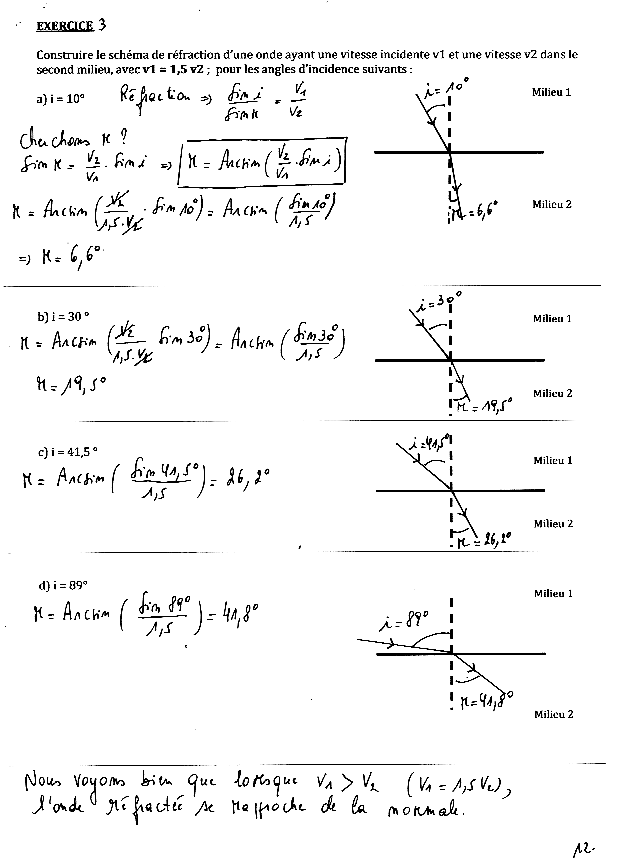 EXERCICE 3
Construire le schéma de réfraction d'une onde ayant une vitesse incidente v1 et une vitesse v2 dans le
second milieu, avec v1 = 1,5 v2 ; pour les angles d'incidence suivants :
a) i = 10° Réfraction => sin i / sin r = V1 / V2
i = 10° Milieu 1
Cherchons r ?
sin r = V2/V1 . sin i => r = Arcsin (V2/V1 . sin i)
r = Arcsin (V2/1,5.V2 . sin 10°) = Arcsin (sin 10°/1,5)
r = 6,6° Milieu 2
=> r = 6,6°
b) i = 30 °
i = 30° Milieu 1
r = Arcsin (V2/1,5.V2 sin 30°) = Arcsin (sin 30°/1,5)
r = 19,5°
r = 19,5° Milieu 2
c) i = 41,5 °
i = 41,5° Milieu 1
r = Arcsin (sin 41,5°/1,5) = 26,2°
r = 26,2° Milieu 2
d) i = 89°
Milieu 1
r = Arcsin (sin 89°/1,5) = 41,8°
i = 89°
r = 41,8°
Milieu 2
Nous voyons bien que lorsque V1 > V2 (V1 = 1,5 V2),
l'onde réfractée se rapproche de la normale.
12.